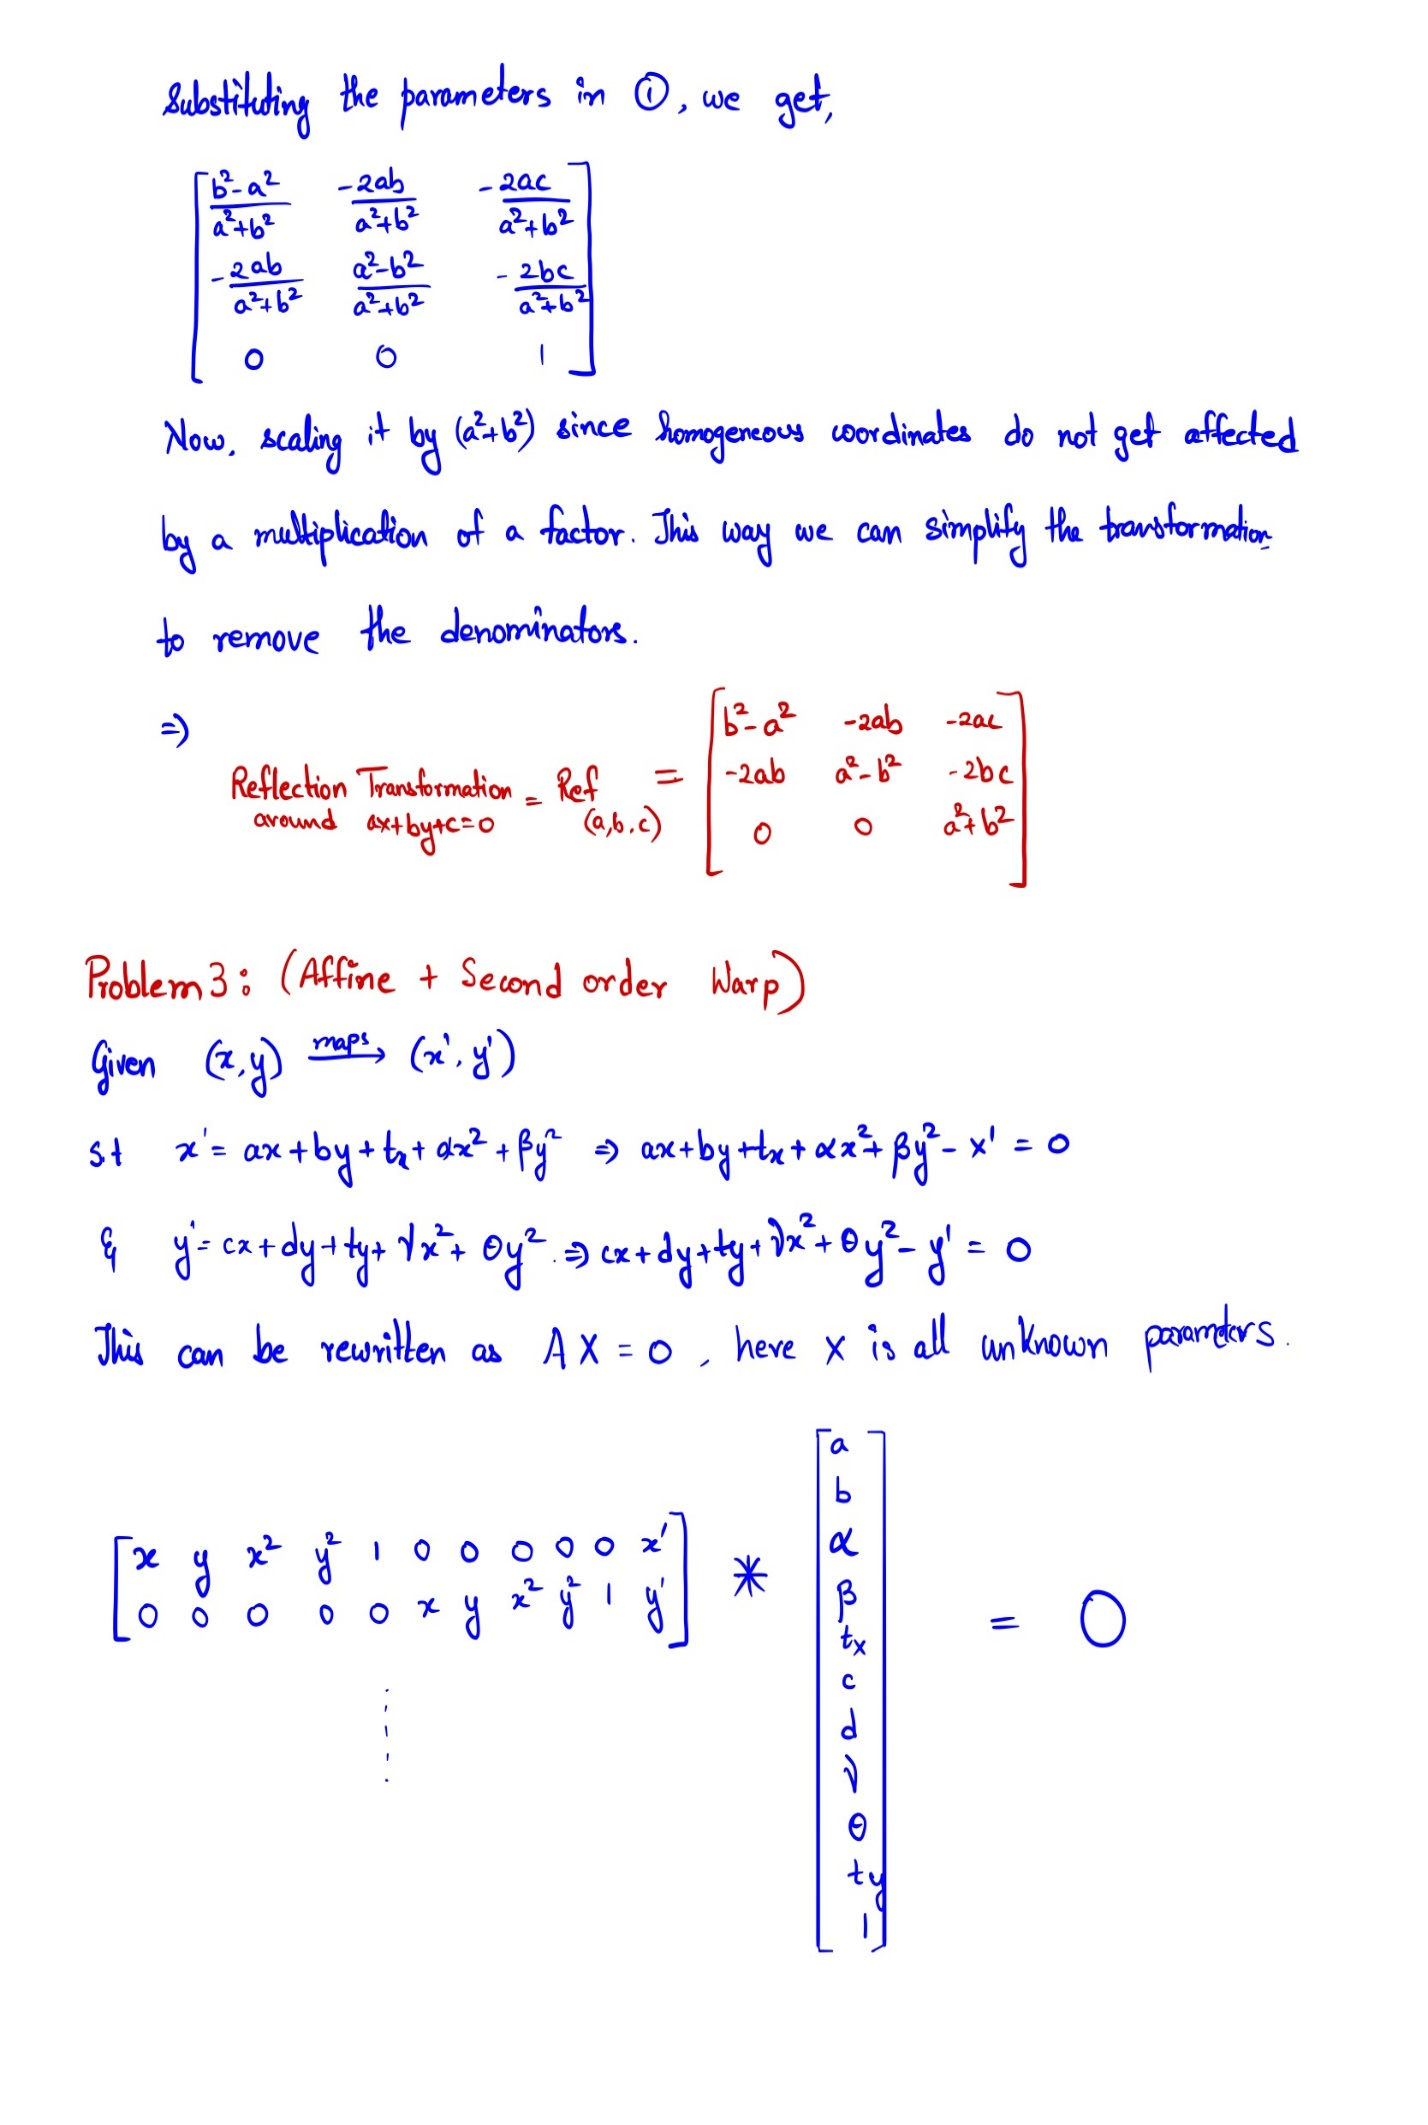 Substituting the parameters in ①, we get,
[ (b²-a²)/(a²+b²)  -2ab/(a²+b²)  -2ac/(a²+b²) ]
[ -2ab/(a²+b²)  (a²-b²)/(a²+b²)  -2bc/(a²+b²) ]
[ 0  0  1 ]
Now, scaling it by (a²+b²) since homogeneous coordinates do not get affected
by a multiplication of a factor. This way we can simplify the transformation
to remove the denominators.
⇒
Reflection Transformation around ax+by+c=0 = Ref (a,b,c) =
[ b²-a²  -2ab  -2ac ]
[ -2ab  a²-b²  -2bc ]
[ 0  0  a²+b² ]
Problem 3: (Affine + Second order Warp)
Given (x,y) maps→ (x', y')
s.t x' = ax+by+tx+αx²+βy² ⇒ ax+by+tx+αx²+βy²-x' = 0
& y' = cx+dy+ty+γx²+θy². ⇒ cx+dy+ty+γx²+θy²-y' = 0
This can be rewritten as AX = 0, here X is all unknown paramters.
[ x y x² y² 1 0 0 0 0 0 x' ]
[ 0 0 0 0 0 x y x² y² 1 y' ]
*
a
b
α
β
tx
c
d
γ
θ
ty
1
= 0